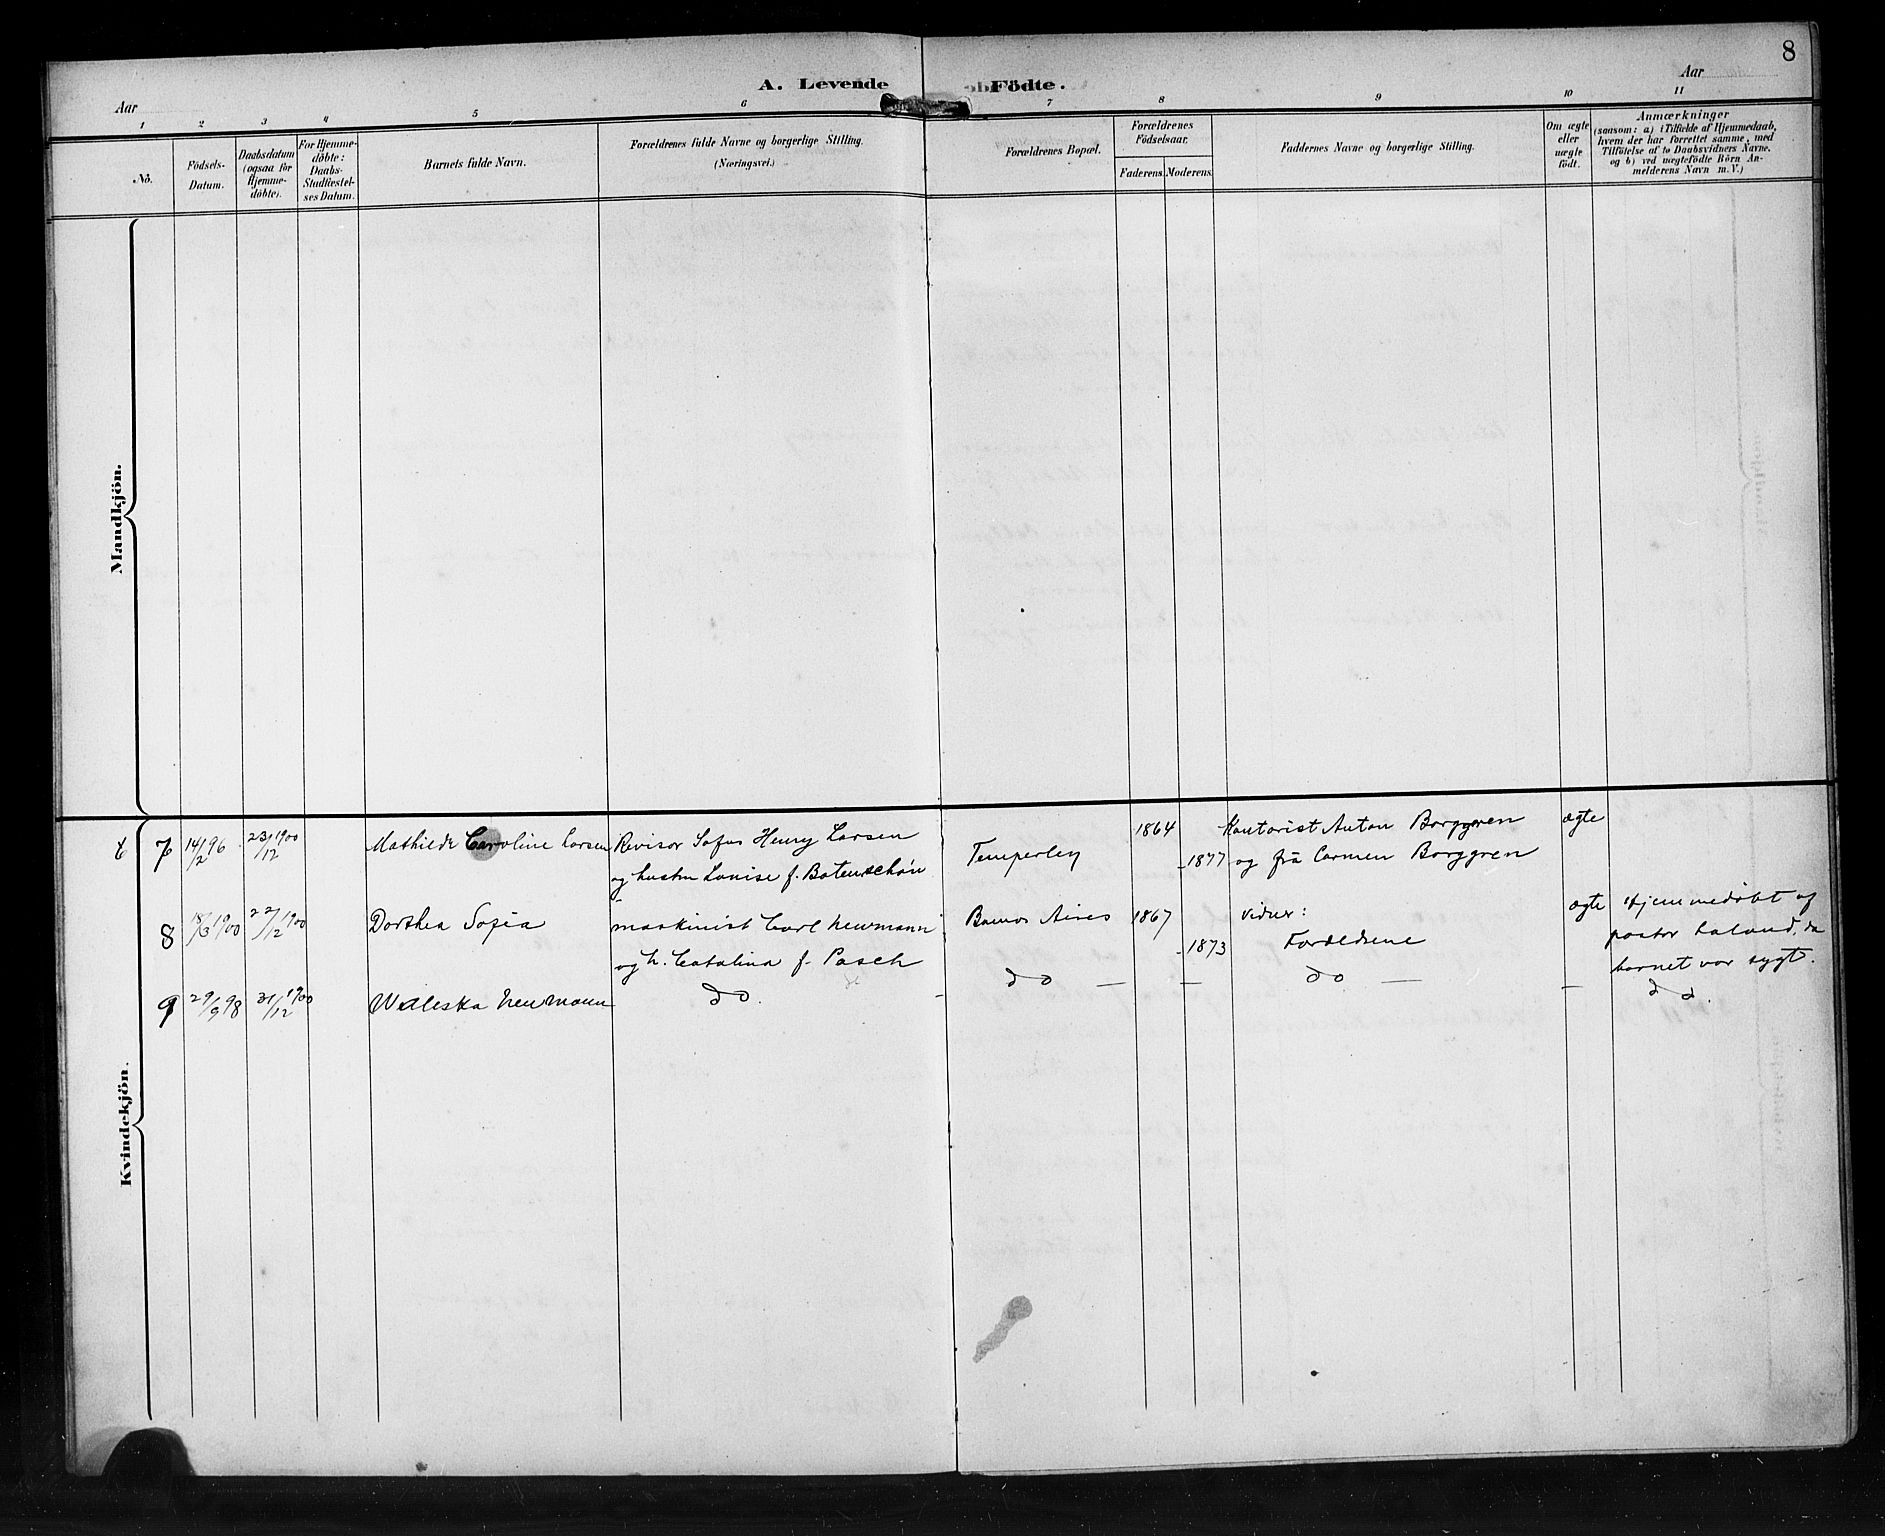 8
A. Levende Födte.
Aar Aar
1 2 3 4 5 6 7 8 9 10 11
No.
Födsels-
Datum.
Daabsdatum
(ogsaa for
Hjemme-
döbte).
For Hjemme-
döbte:
Daabs-
Stadfæstel-
ses Datum.
Barnets fulde Navn.
Forældrenes fulde Navne og borgerlige Stilling.
(Næringsvei.)
Forældrenes Bopæl.
Forældrenes
Födselsaar.
Faderens. Moderens.
Faddernes Navne og borgerlige Stilling.
Om ægte
eller
uægte
födt.
Anmærkninger
(saasom: a) i Tilfælde af Hjemmedaab,
hvem der har forrettet samme, med
Tilföielse af to Daabsvidners Navne.
og b) ved uægtefödte Börn An-
melderens Navn m. V.)
Mandkjön.
Kvindekjön.
7 14/2 96 23/12 1900 Mathilde Caroline Larsen Revisor Sofus Henry Larsen
og hustru Louise f. Botenschön
Temperley 1864
1877
Kontorist Anton Borggren
og frå Carmen Borggren
ægte
8 18/3 1900 22/12 1900 Dorthea Sofia maskinist Carl Neumann
og h. Catalina f. Pasch
Buenos Aires 1867
1873
vidner:
Forældrene
ægte Hjemmedöbt af
pastor Laland, da
barnet var sygt.
9 29/9 98 31/12 1900 Waleska Neumann do. do — — do — — d d.